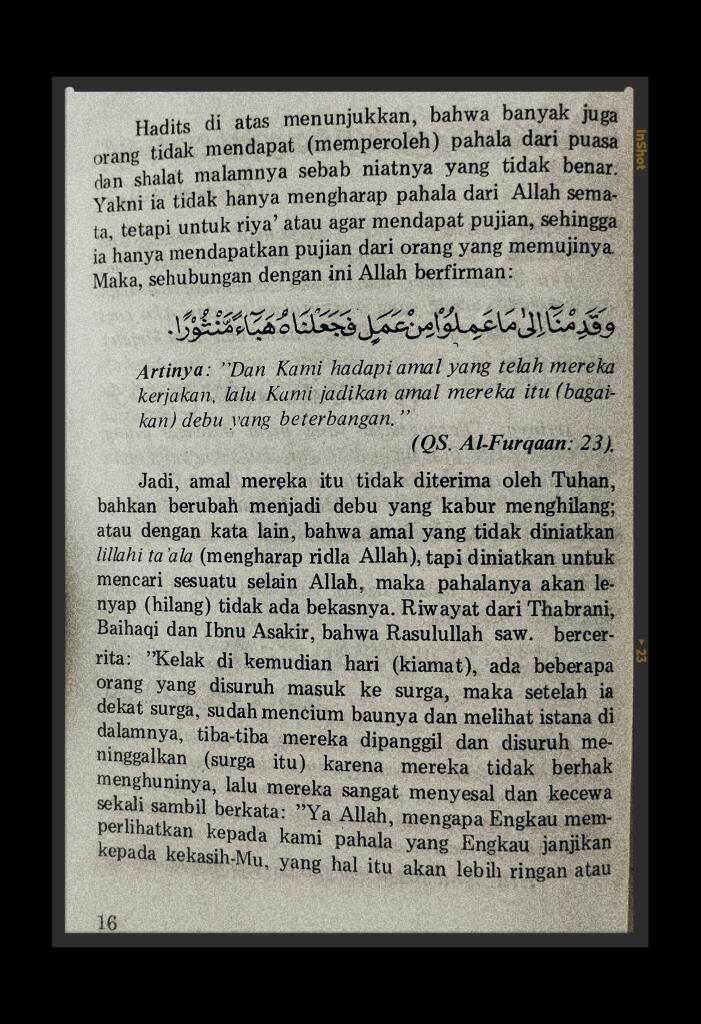 Hadits di atas menunjukkan, bahwa banyak juga
orang tidak mendapat (memperoleh) pahala dari puasa
dan shalat malamnya sebab niatnya yang tidak benar.
Yakni ia tidak hanya mengharap pahala dari Allah sema-
ta, tetapi untuk riya' atau agar mendapat pujian, sehingga
ia hanya mendapatkan pujian dari orang yang memujinya.
Maka, sehubungan dengan ini Allah berfirman:
وَقَدِمْنَآ اِلٰى مَا عَمِلُوْا مِنْ عَمَلٍ فَجَعَلْنَاهُ هَبَآءً مَّنْثُوْرًا.
Artinya: "Dan Kami hadapi amal yang telah mereka
kerjakan, lalu Kami jadikan amal mereka itu (bagai-
kan) debu yang beterbangan."
(QS. Al-Furqaan: 23).
Jadi, amal mereka itu tidak diterima oleh Tuhan,
bahkan berubah menjadi debu yang kabur menghilang;
atau dengan kata lain, bahwa amal yang tidak diniatkan
lillahi ta'ala (mengharap ridla Allah), tapi diniatkan untuk
mencari sesuatu selain Allah, maka pahalanya akan le-
nyap (hilang) tidak ada bekasnya. Riwayat dari Thabrani,
Baihaqi dan Ibnu Asakir, bahwa Rasulullah saw. bercer-
rita: "Kelak di kemudian hari (kiamat), ada beberapa
orang yang disuruh masuk ke surga, maka setelah ia
dekat surga, sudah mencium baunya dan melihat istana di
dalamnya, tiba-tiba mereka dipanggil dan disuruh me-
ninggalkan (surga itu) karena mereka tidak berhak
menghuninya, lalu mereka sangat menyesal dan kecewa
sekali sambil berkata: "Ya Allah, mengapa Engkau mem-
perlihatkan kepada kami pahala yang Engkau janjikan
kepada kekasih-Mu, yang hal itu akan lebih ringan atau
16
InShot
23